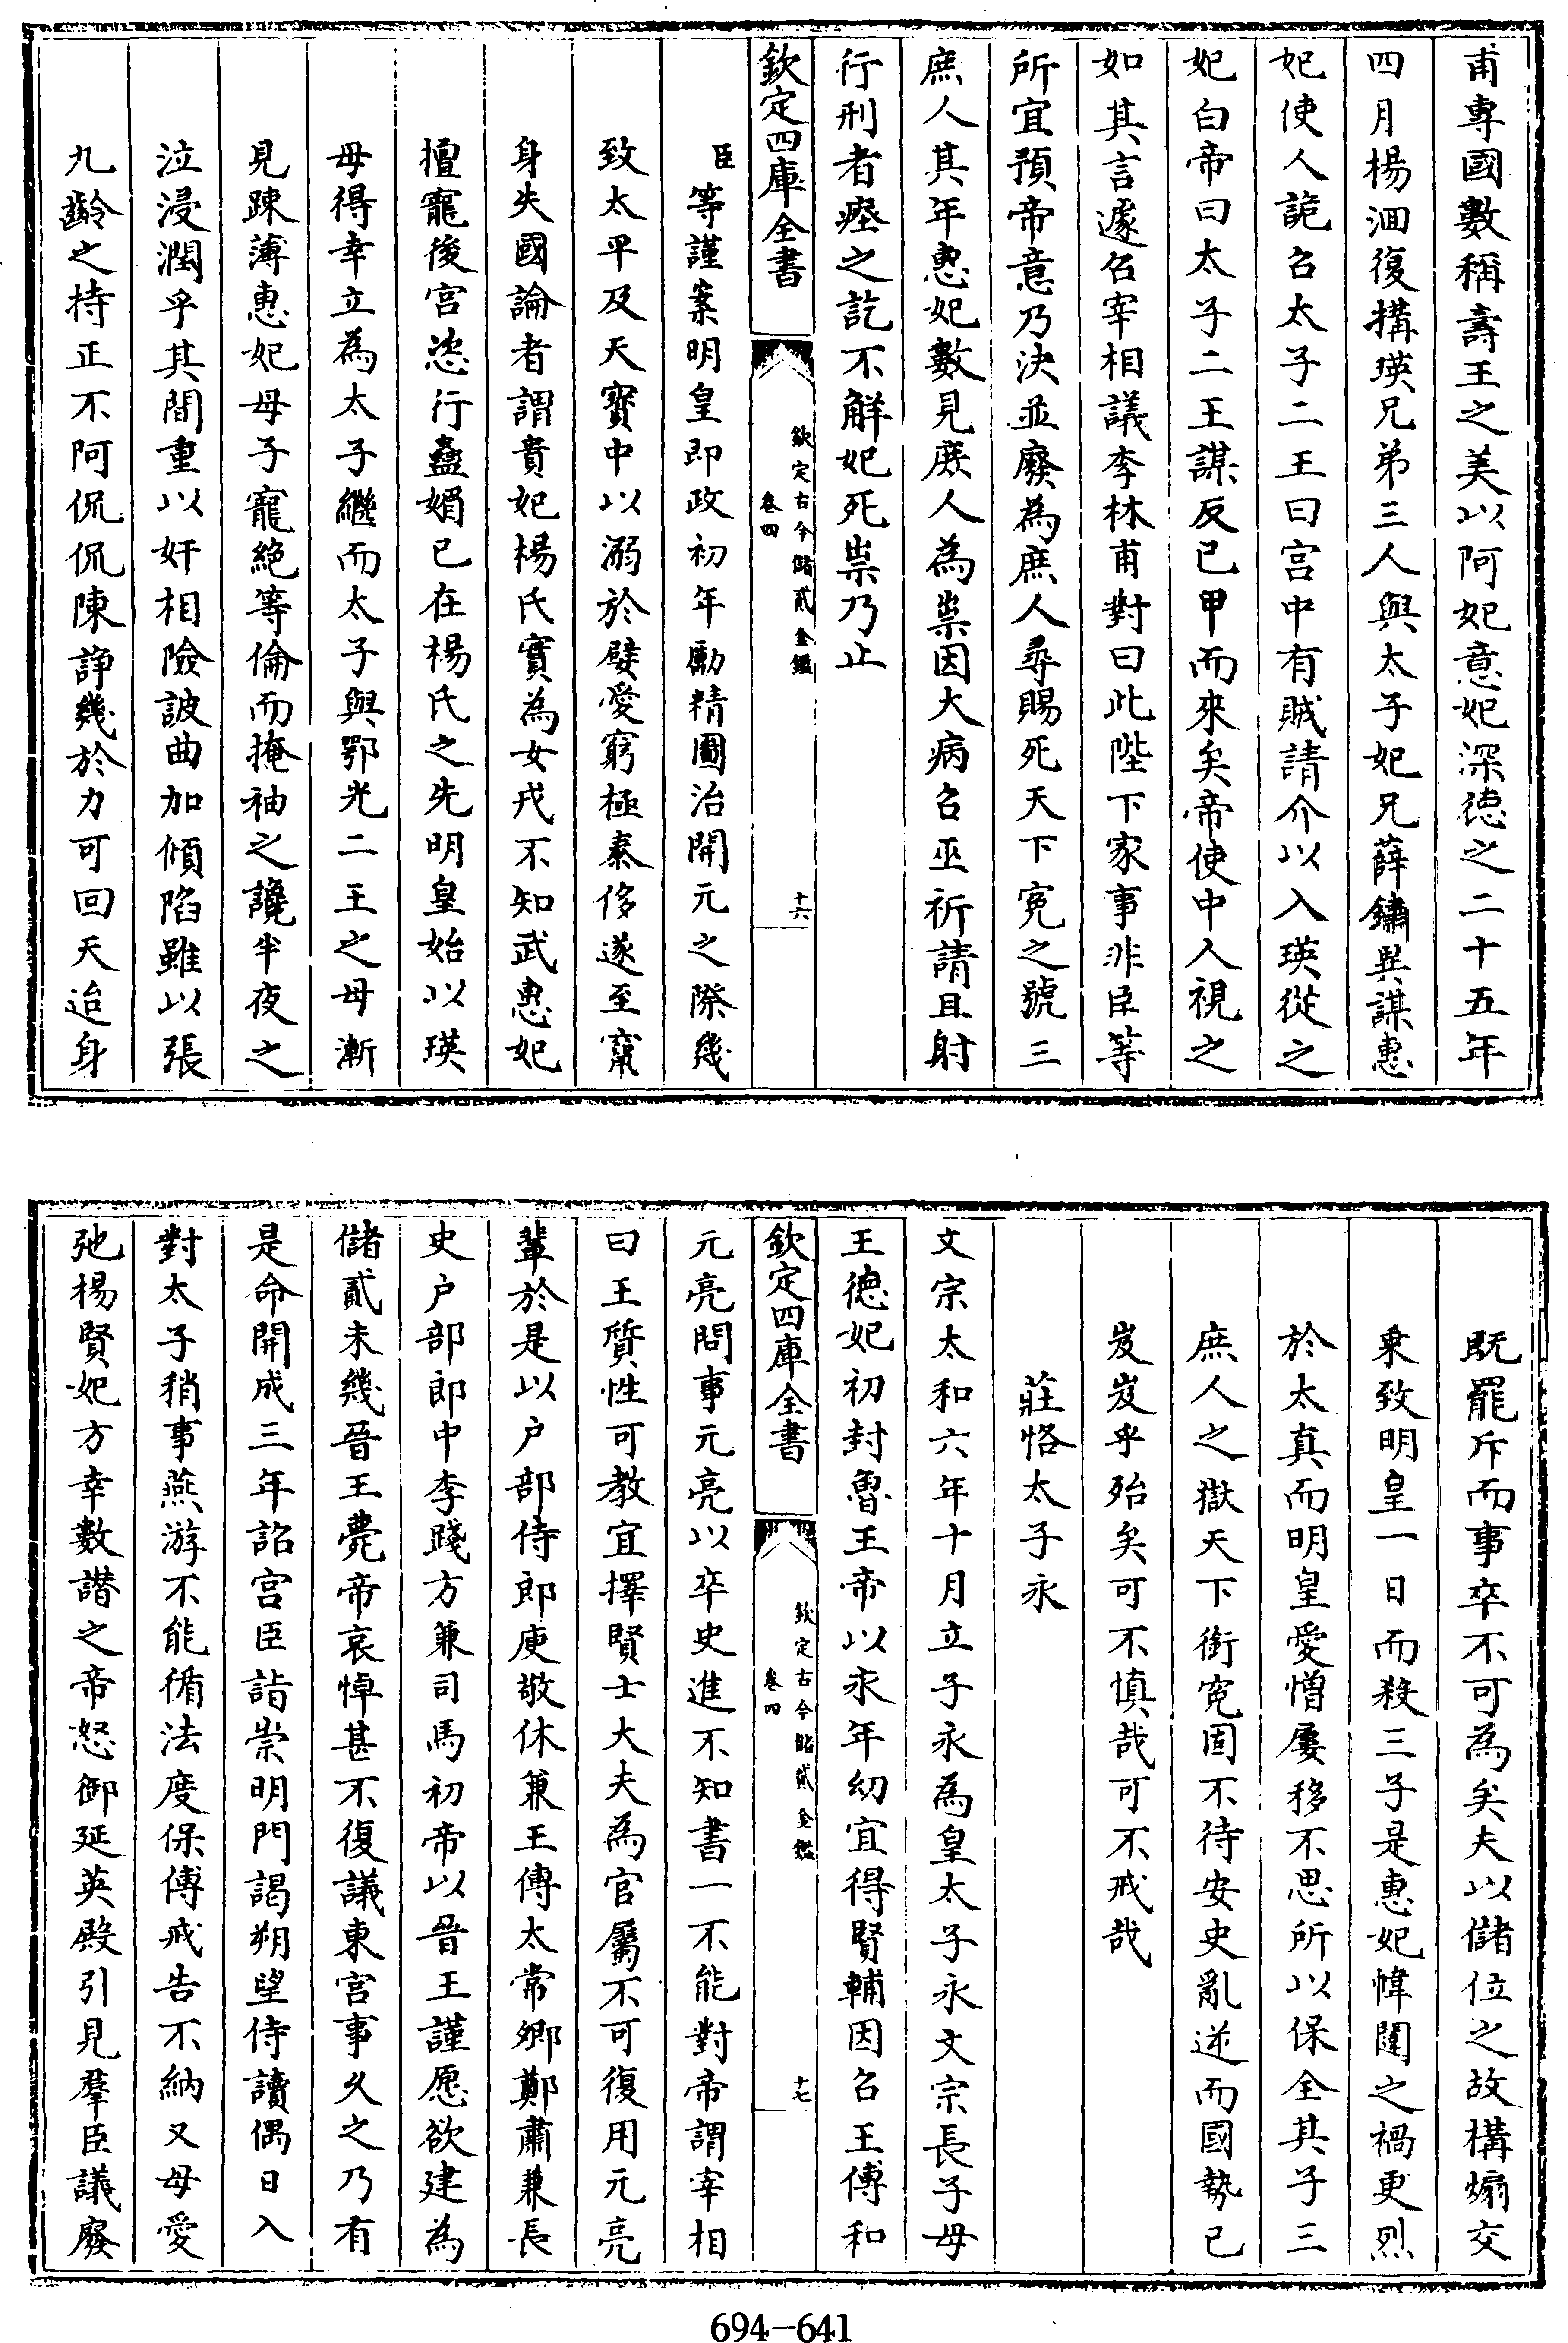 甫專國數稱壽王之美以阿妃意妃深德之二十五年
四月楊洄復搆瑛兄弟三人與太子妃兄薛鏽異謀惠
妃使人詭召太子二王曰宮中有賊請介以入瑛從之
妃白帝曰太子二王謀反已甲而來矣帝使中人視之
如其言遽召宰相議李林甫對曰此陛下家事非臣等
所宜預帝意乃決並廢為庶人尋賜死天下冤之號三
庶人其年惠妃數見庶人為祟因大病召巫祈請且射
行刑者瘞之訖不解妃死祟乃止
欽定四庫全書
欽定古今儲貳金鑑
卷四
十六
臣等謹案明皇即政初年勵精圖治開元之際幾
致太平及天寶中以溺於嬖愛窮極奏侈遂至竄
身失國論者謂貴妃楊氏實為女戎不知武惠妃
擅寵後宮恣行蠱媚已在楊氏之先明皇始以瑛
母得幸立為太子繼而太子與鄂光二王之母漸
見踈薄惠妃母子寵絕等倫而掩袖之讒半夜之
泣浸潤乎其間重以奸相險詖曲加傾陷雖以張
九齡之持正不阿侃侃陳諍幾於力可回天迨身
既罷斥而事卒不可為矣夫以儲位之故構煽交
乘致明皇一日而殺三子是惠妃幃闥之禍更烈
於太真而明皇愛憎屢移不思所以保全其子三
庶人之獄天下銜冤固不待安史亂逆而國勢已
岌岌乎殆矣可不慎哉可不戒哉
莊恪太子永
文宗太和六年十月立子永為皇太子永文宗長子母
王德妃初封魯王帝以永年幼宜得賢輔因召王傅和
欽定四庫全書
欽定古今儲貳金鑑
卷四
十七
元亮問事元亮以卒史進不知書一不能對帝謂宰相
曰王質性可教宜擇賢士大夫為官屬不可復用元亮
輩於是以戶部侍郎庾敬休兼王傅太常卿鄭肅兼長
史户部郎中李踐方兼司馬初帝以晉王謹愿欲建為
儲貳未幾晉王薨帝哀悼甚不復議東宮事久之乃有
是命開成三年詔宮臣詣崇明門謁朔望侍讀偶日入
對太子稍事燕游不能循法度保傅戒告不納又母愛
弛楊賢妃方幸數譖之帝怒御延英殿引見羣臣議廢
694-641